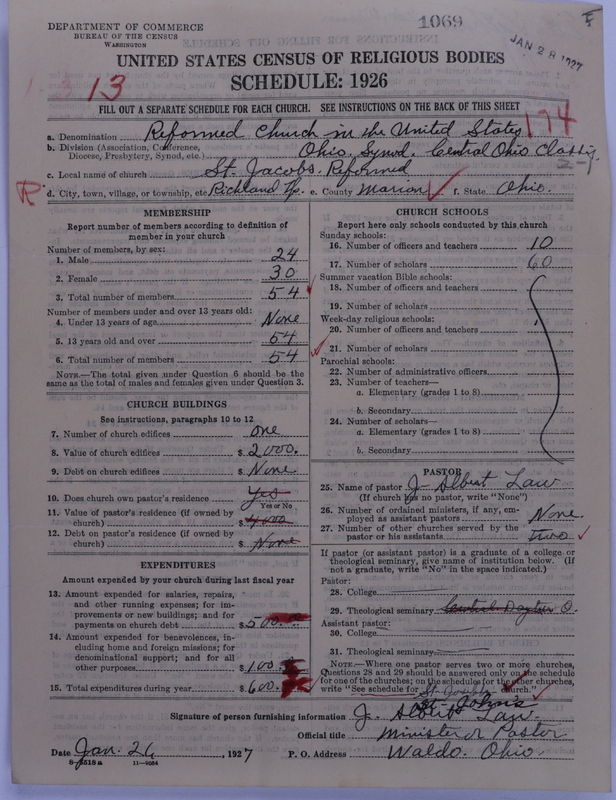 1069
DEPARTMENT OF COMMERCE
BUREAU OF THE CENSUS
WASHINGTON
JAN 28 1927
UNITED STATES CENSUS OF RELIGIOUS BODIES
SCHEDULE: 1926
13
FILL OUT A SEPARATE SCHEDULE FOR EACH CHURCH. SEE INSTRUCTIONS ON THE BACK OF THIS SHEET
174
a. Denomination Reformed Church in the United States
b. Division (Association, Conference, Diocese, Presbytery, Synod, etc.) Ohio Synod. Central Ohio Classis
c. Local name of church St. Jacobs Reformed
R
d. City, town, village, or township, etc. Richland Tp. e. County Marion f. State Ohio.
MEMBERSHIP
Report number of members according to definition of
member in your church
Number of members, by sex:
1. Male 24
2. Female 30
3. Total number of members 54
Number of members under and over 13 years old:
4. Under 13 years of age None
5. 13 years old and over 54
6. Total number of members 54
NOTE.—The total given under Question 6 should be the
same as the total of males and females given under Question 3.
CHURCH BUILDINGS
See instructions, paragraphs 10 to 12
7. Number of church edifices one
8. Value of church edifices $ 2000.
9. Debt on church edifices $ None
10. Does church own pastor's residence Yes
Yes or No
11. Value of pastor's residence (if owned by
church) $ 4000
12. Debt on pastor's residence (if owned by
church) $ None
EXPENDITURES
Amount expended by your church during last fiscal year
13. Amount expended for salaries, repairs,
and other running expenses; for im-
provements or new buildings; and for
payments on church debt $ 500.
14. Amount expended for benevolences, in-
cluding home and foreign missions; for
denominational support; and for all
other purposes $ 100.
15. Total expenditures during year $ 600.
CHURCH SCHOOLS
Report here only schools conducted by this church
Sunday schools:
16. Number of officers and teachers 10
17. Number of scholars 60
Summer vacation Bible schools:
18. Number of officers and teachers
19. Number of scholars
Week-day religious schools:
20. Number of officers and teachers
21. Number of scholars
Parochial schools:
22. Number of administrative officers
23. Number of teachers—
a. Elementary (grades 1 to 8)
b. Secondary
24. Number of scholars—
a. Elementary (grades 1 to 8)
b. Secondary
PASTOR
25. Name of pastor J. Albert Law
(If church has no pastor, write "None")
26. Number of ordained ministers, if any, em-
ployed as assistant pastors None.
27. Number of other churches served by the
pastor or his assistants two
If pastor (or assistant pastor) is a graduate of a college or
theological seminary, give name of institution below. (If
not a graduate, write "No" in the space indicated.)
Pastor:
28. College
29. Theological seminary Central Dayton O.
Assistant pastor:
30. College
31. Theological seminary
NOTE.—Where one pastor serves two or more churches,
Questions 28 and 29 should be answered only on the schedule
for one of the churches; on the schedules for the other churches,
write "See schedule for St. John's church."
Signature of person furnishing information J. Albert Law.
Official title Minister or Pastor
Date Jan. 26, 1927 P. O. Address Waldo. Ohio.
8—5518 a 11—9664